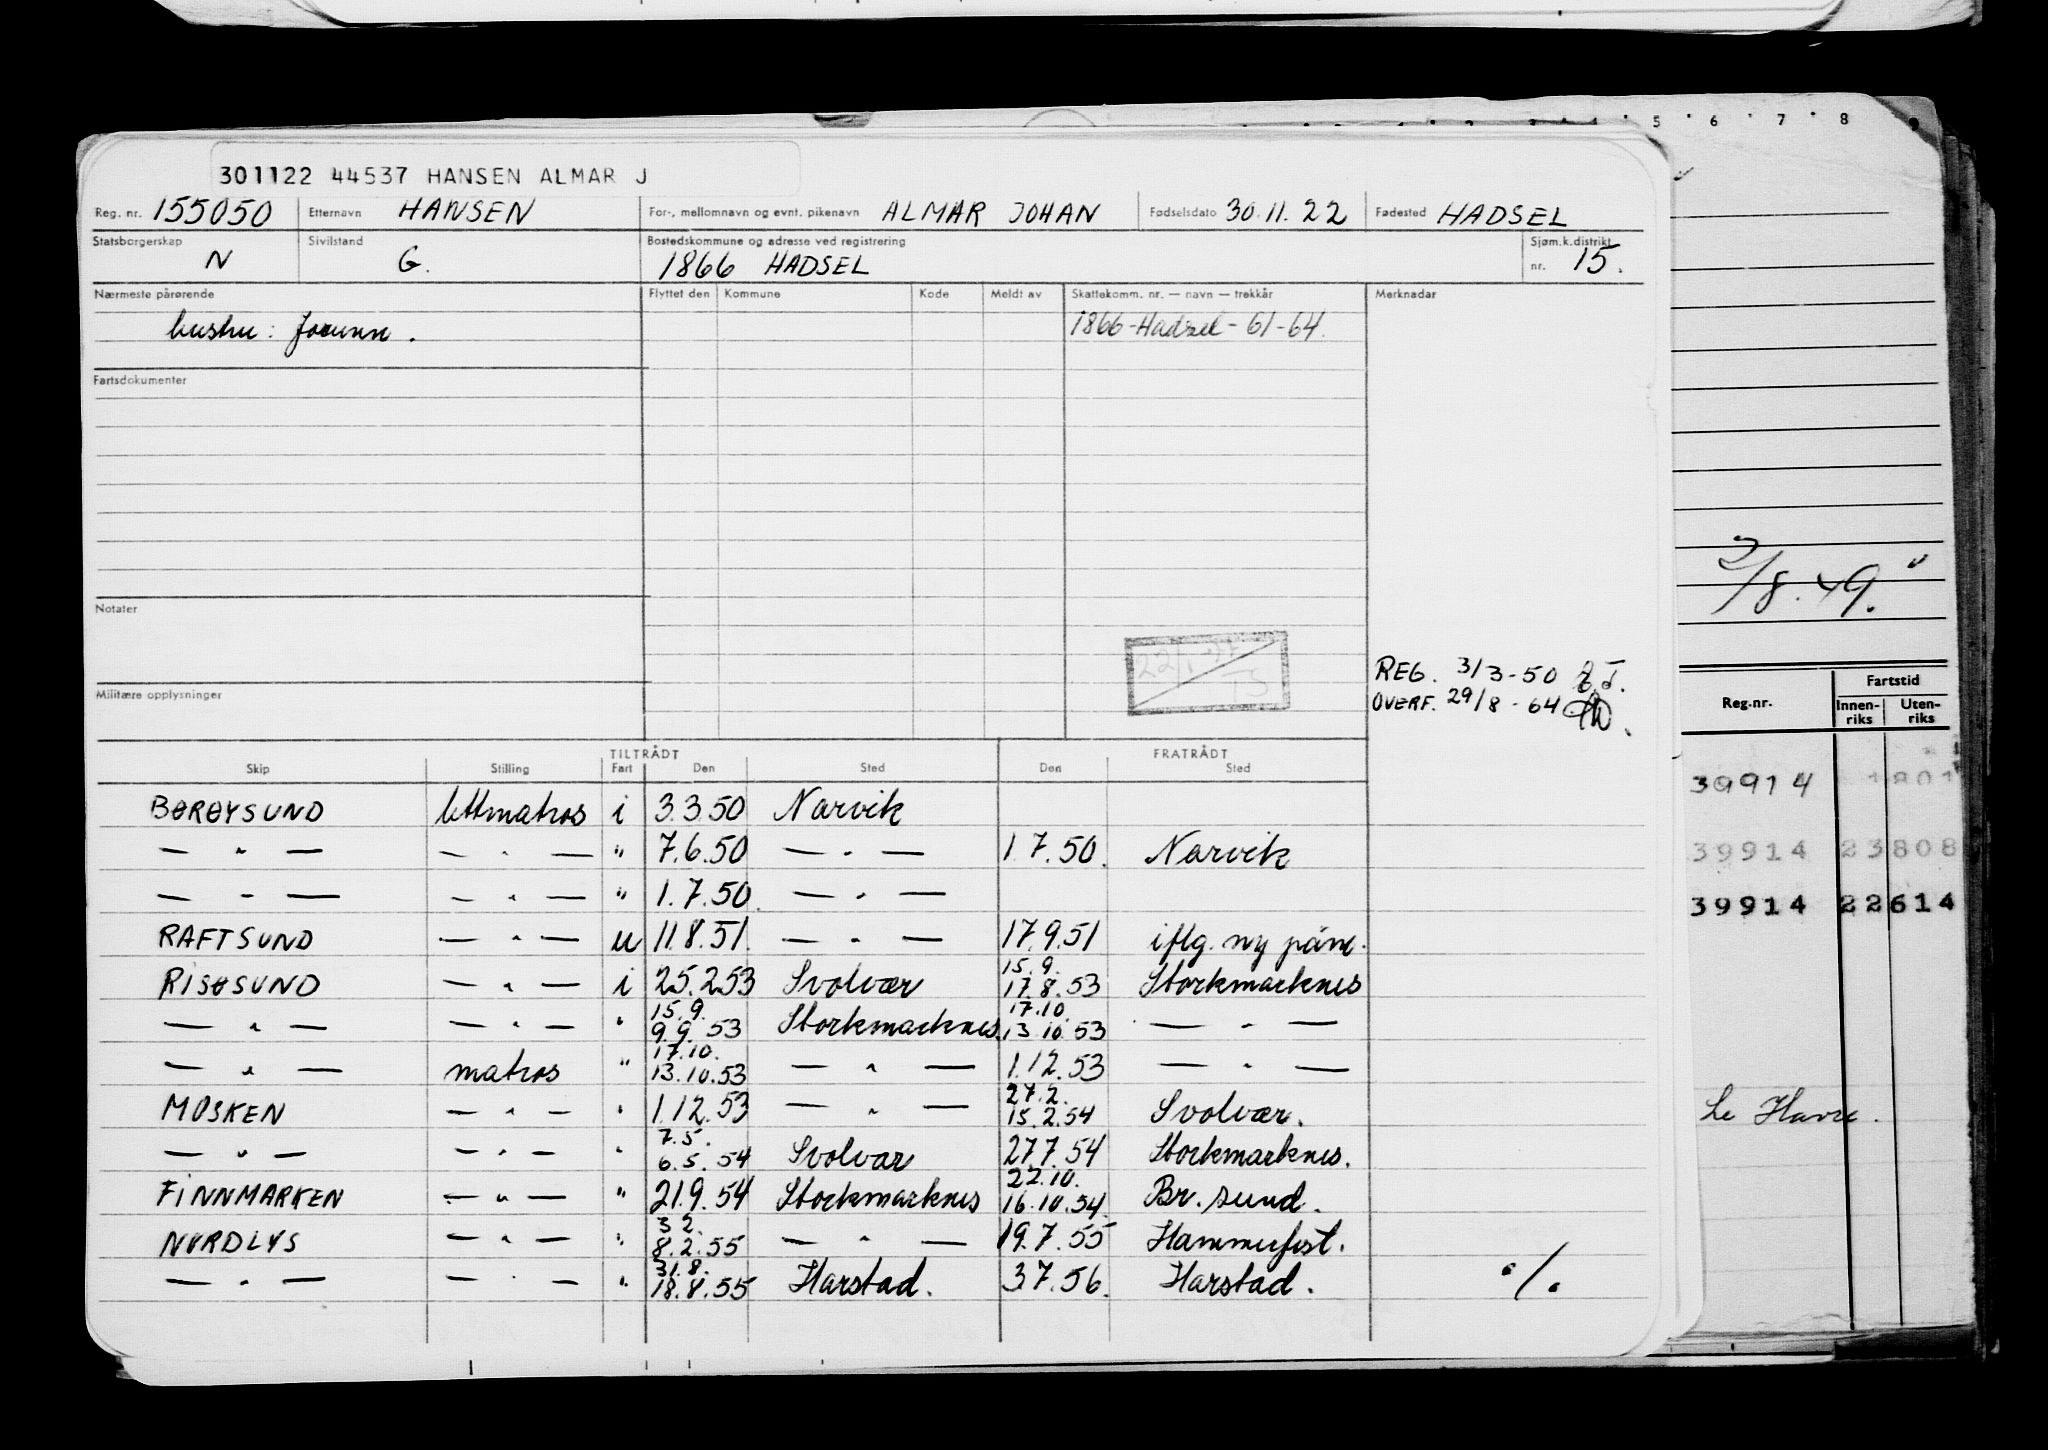 5 6 7 8 9
301122 44537 HANSEN ALMAR J
Reg. nr. 155050 Etternavn HANSEN For-, mellomnavn og evnt. pikenavn ALMAR JOHAN Fødselsdato 30.11.22 Fødested HADSEL
Statsborgerskap N Sivilstand G. Bostedskommune og adresse ved registrering 1866 HADSEL Sjøm.k.distrikt nr. 15.
Nærmeste pårørende Flyttet den Kommune Kode Meldt av Skattekomm. nr. — navn — trekkår Merknader
hustru: Jorunn. 1866-Hadsel-61-64.
Fartsdokumenter
2/8.49.
Notater
REG. 3/3-50
Militære opplysninger
OVERF. 29/8-64
TILTRÅDT FRATRÅDT
Skip Stilling Fart Den Sted Den Sted
BØRØYSUND lettmatros i 3.3.50 Narvik
— " — — " — " 7.6.50 — " — 1.7.50. Narvik
— " — — " — " 1.7.50. — " —
RAFTSUND — " — u 11.8.51. — " — 17.9.51 iflg. ny påm.
15.9.
RISØSUND — " — i 25.2.53 Svolvær 17.8.53 Stockmarknes
15.9. 17.10.
— " — — " — " 9.9.53 Stockmarknes. 13.10.53 — " —
17.10.
— " — matros " 13.10.53 — " — 1.12.53 — " —
27.2.
MOSKEN — " — " 1.12.53 — " — 15.2.54 Svolvær.
7.5.
— " — — " — " 6.5.54 Svolvær 27.7.54 Stockmarknes.
22.10.
FINNMARKEN — " — " 21.9.54 Stockmarknes 16.10.54. Br.sund.
3.2.
NORDLYS — " — " 8.2.55 — " — 19.7.55 Hammerfest.
31.8.
— " — — " — " 18.8.55 Harstad. 3.7.56. Harstad. ./.
Reg.nr. Fartstid
Innen-riks Uten-riks
39914 1801
39914 23808
39914 22614
Le Havre.